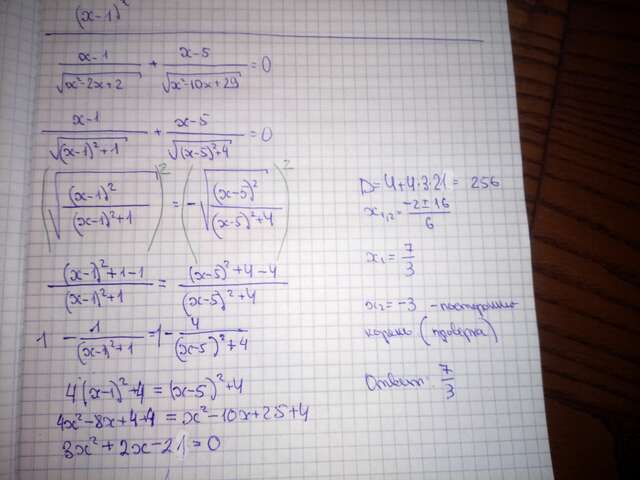 (x-1)²
x-1/√(x²-2x+2) + x-5/√(x²-10x+29) = 0
x-1/√((x-1)²+1) + x-5/√((x-5)²+4) = 0
(√((x-1)²/((x-1)²+1)))² = (-√((x-5)²/((x-5)²+4)))²
(x-1)²+1-1/(x-1)²+1 = (x-5)²+4-4/(x-5)²+4
1 - 1/(x-1)²+1 = 1 - 4/(x-5)²+4
4(x-1)²+4 = (x-5)²+4
4x²-8x+4+4 = x²-10x+25+4
3x²+2x-21=0
D=4+4·3·21 = 256
x₁,₂ = -2±16/6
x₁ = 7/3
x₂ = -3 - посторонний
корень (проверка)
Ответ: 7/3